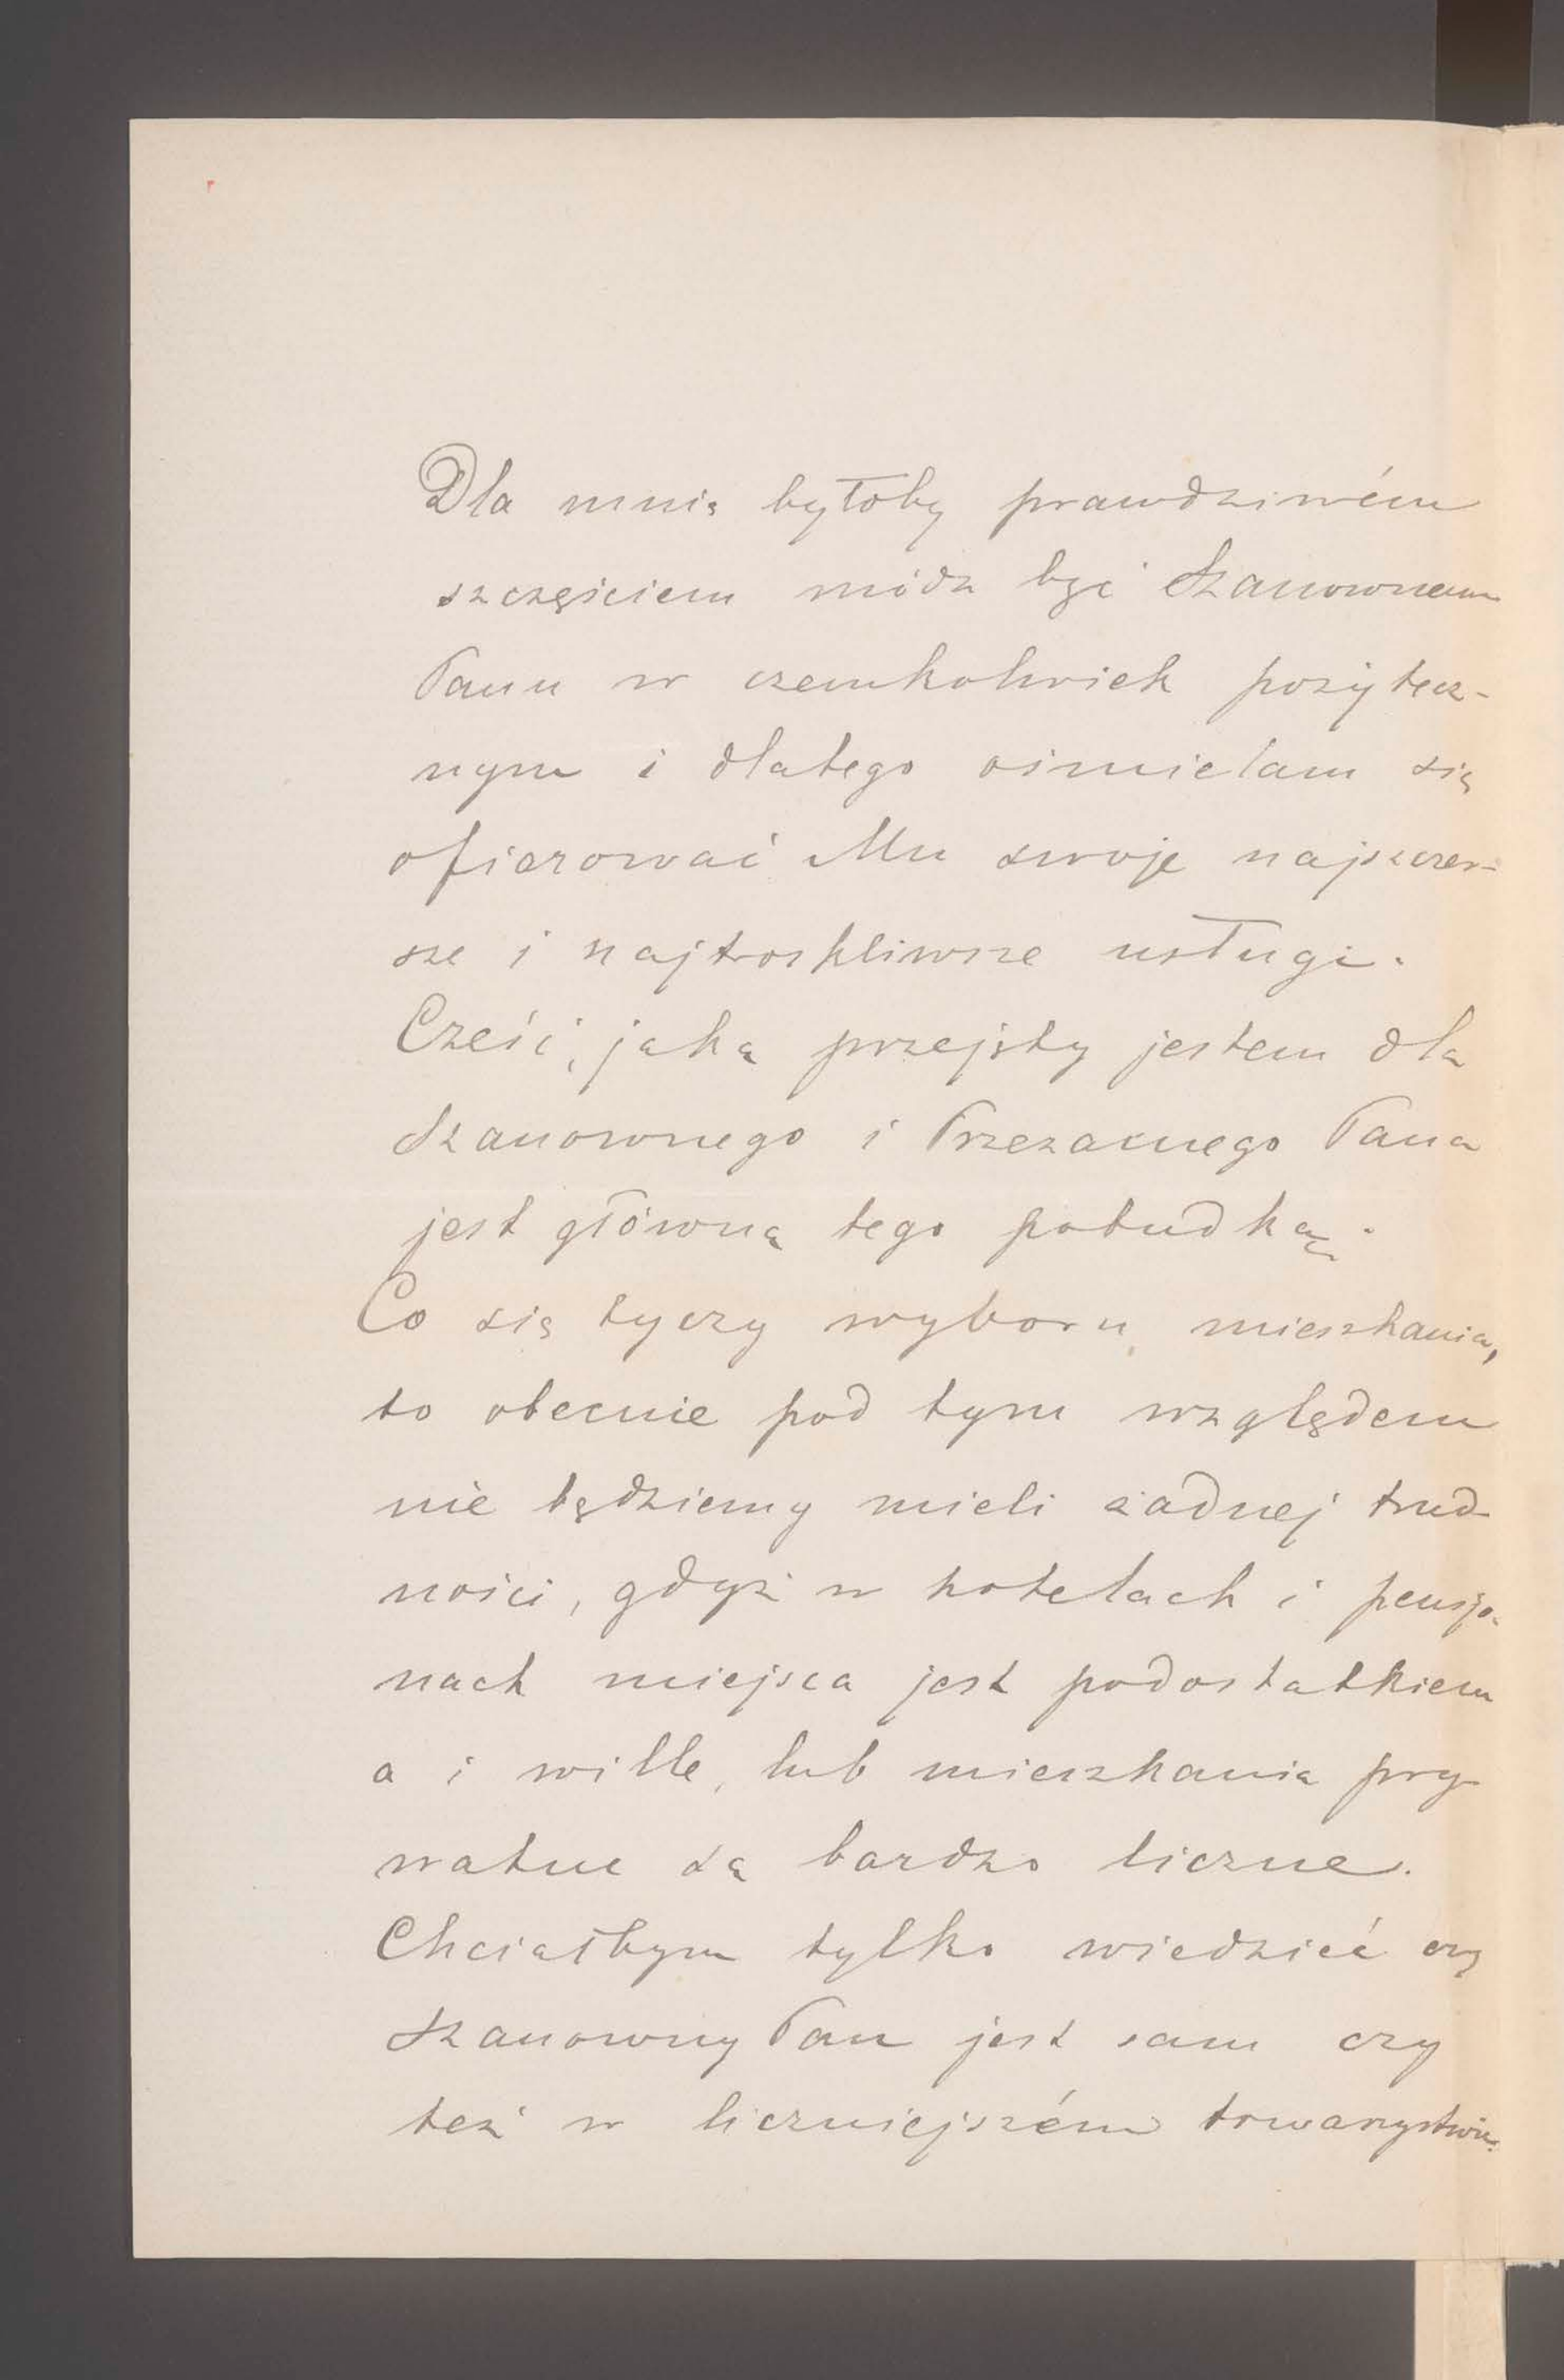 Dla mnię byłoby prawdziwém
szczęściem módz być Szanownem
Panu w czemkolwiek pożytecz-
nym i dlatego ośmielam się
ofiarować Mu swoje najszczer-
sze i najtroskliwsze usługi.
Cześć, jaką przejęty jestem dla
Szanownego i Przezacnego Pana
jest główną tego pobudką.
Co się tyczy wyboru mieszkania,
to obecnie pod tym względem
nie będziemy mieli żadnej trud-
ności, gdyż w hotelach i pensjo-
nach miejsca jest podostatkiem
a i wille, lub mieszkania pry-
watne są bardzo liczne.
Chciałbym tylko wiedzieć czy
Szanowny Pan jest sam czy
też w liczniejszém towarzystwie.